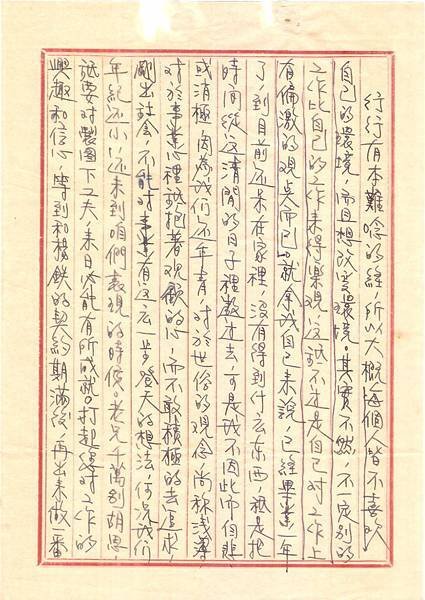 行行有本難唸的經，所以大概每個人皆不喜歡
自己的環境，而且想改變環境。其實不然，不一定別的
工作比自己的工作來得樂觀，這試不才是自己對工作上
有偏激的观点而已。就余我自己來說，已經畢業一年
了，到目前还呆在家裡，沒有得到什広東西，祗是把
時间從这清閒的日子裡數过去，可是我不因此而自悲
或消極，因為我们还年青，对於世俗的观念尚称浅薄
对於事業心裡祗抱著观顧的心，而不敢積極的去追求，
剛出社会，不能对事業有这広一步登天的想法，何况我们
年紀还小，还未到咱們表現的時候。老兄千萬别胡思，
祗要对製图下工夫，來日必能有所成就。打起線对工作的
興趣和信心，等到和楊鉄的契約期滿後，再出來做一番